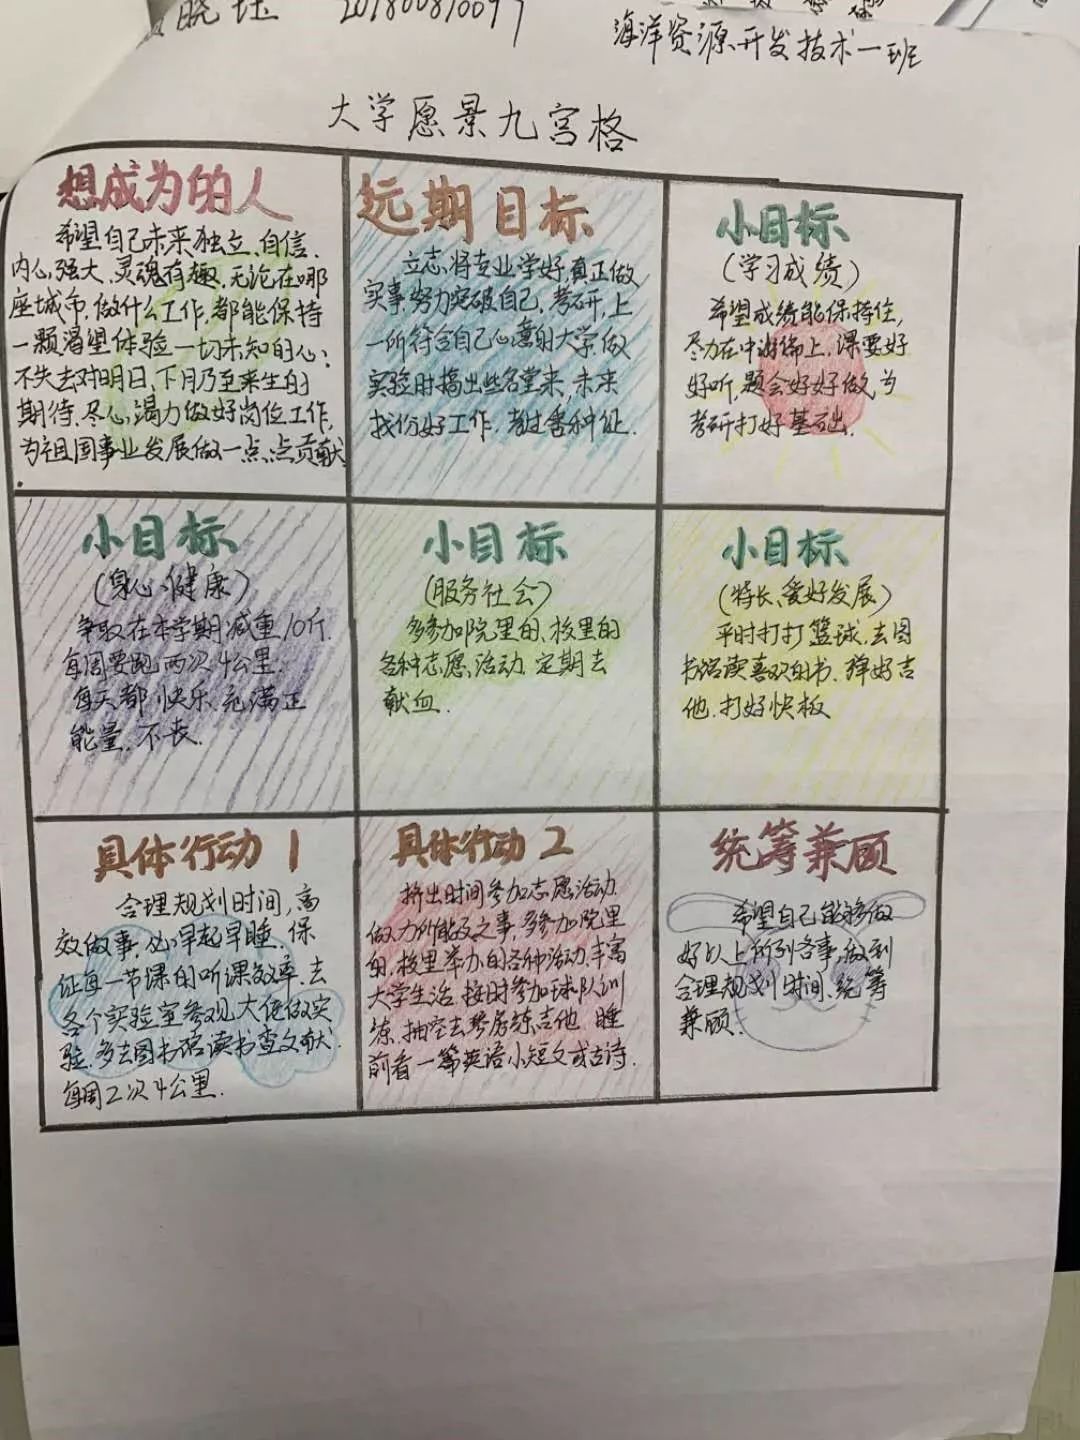 晓珏 201800810097
海洋资源开发技术一班
大学愿景九宫格
想成为的人
希望自己未来独立、自信、
内心强大、灵魂有趣,无论在哪
座城市,做什么工作,都能保持
一颗渴望体验一切未知的心;
不失去对明日、下月乃至来生的
期待.尽心竭力做好岗位工作,
为祖国事业发展做一点点贡献
.
远期目标
立志将专业学好,真正做
实事,努力突破自己,考研,上
一所符合自己心意的大学,做
实验时搞出些名堂来,未来
找份好工作,考过各种证.
小目标
(学习成绩)
希望成绩能保持住,
尽力在中游偏上,课要好
好听,题会好好做,为
考研打好基础.
小目标
(身心健康)
争取在本学期减重10斤.
每周要跑两次4公里.
每天都快乐、充满正
能量,不丧.
小目标
(服务社会)
多参加院里的、校里的
各种志愿活动,定期去
献血.
小目标
(特长、爱好发展)
平时打打篮球,去图
书馆读喜欢的书,弹好吉
他,打好快板
具体行动1
合理规划时间,高
效做事,必早起早睡,保
证每一节课的听课效率,去
各个实验室参观大佬做实
验,多去图书馆读书查文献.
每周2次4公里.
具体行动2
挤出时间参加志愿活动
做力所能及之事,多参加院里
的、校里举办的各种活动,丰富
大学生活,按时参加球队训
练,抽空去琴房练吉他,睡
前看一篇英语小短文或古诗.
统筹兼顾
希望自己能够做
好以上所列各事,做到
合理规划时间、统筹
兼顾.